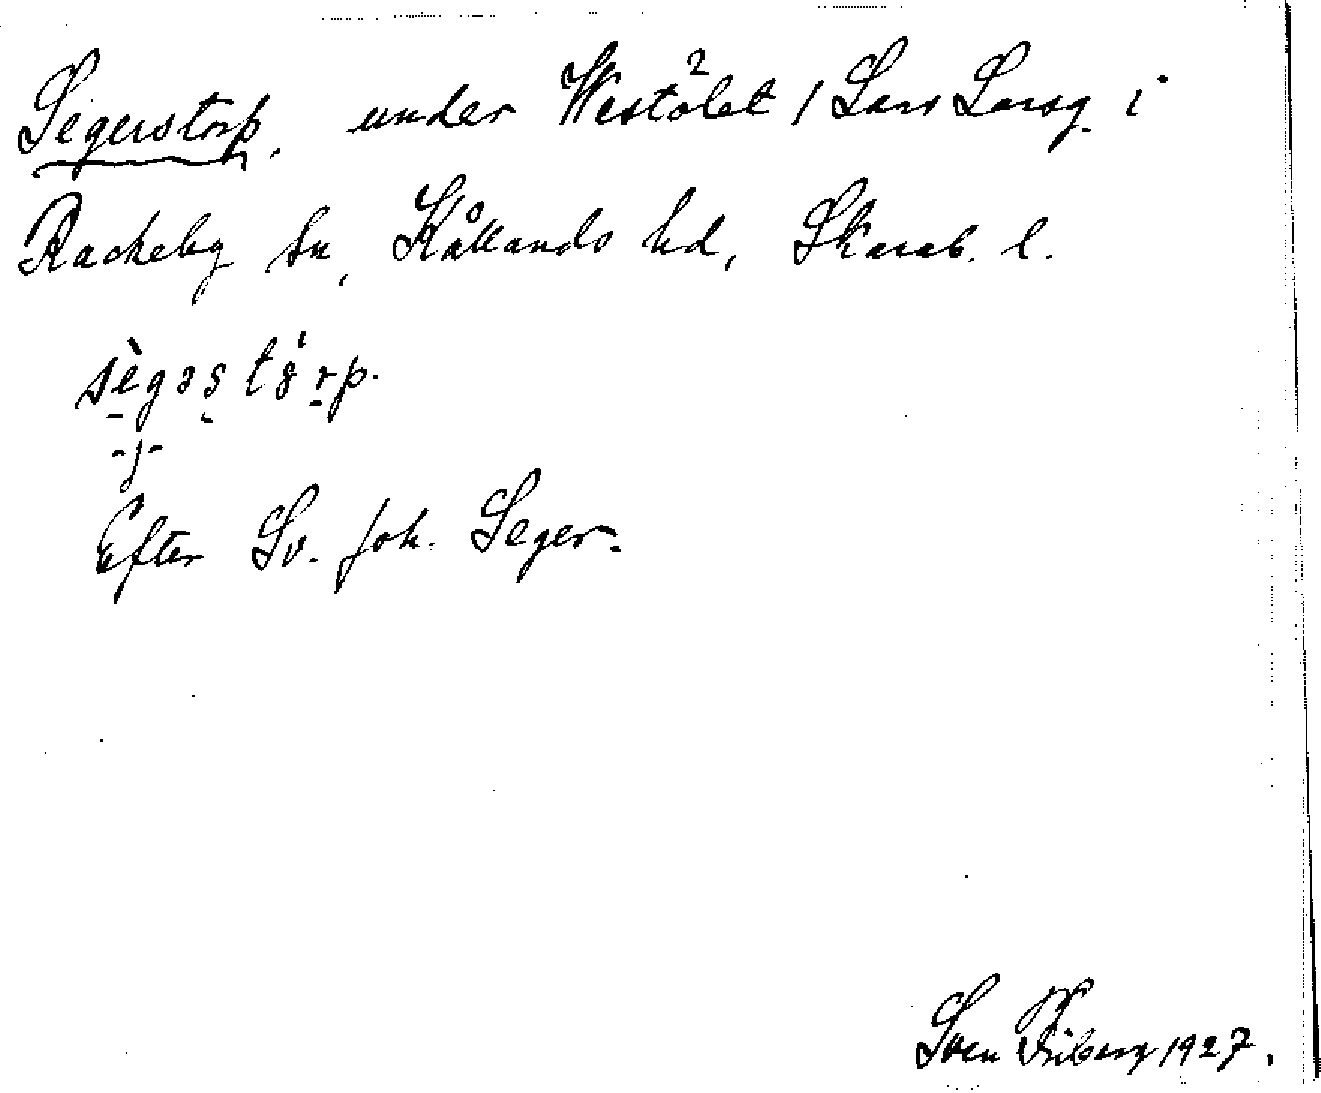 Segerstorp, under Westölet 2 / Lars Larsg. i
Rackeby sn, Kållands hd, Skarab. l.
sègəs tórp.
-j-
Efter Sv. Joh. Seger.
Sven Friberg 1927.